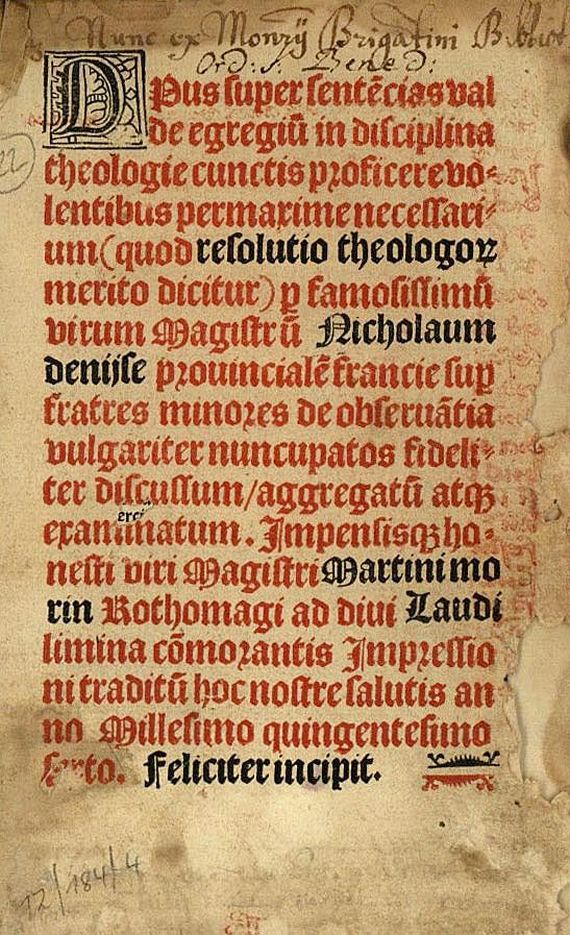 Nunc ex Monrÿ Brigatini Bibliot
Ord: S. Bened:
OPus super sentẽcias val
de egregiũ in disciplina
theologie cunctis proficere vo⸗
lentibus permaxime necessari⸗
um (quod resolutio theologoꝝ
merito dicitur) ꝑ famosissimũ
virum Magistrũ Nicholaum
denijse prouincialẽ francie suꝑ
fratres minores de obseruãtia
vulgariter nuncupatos fideli⸗
ter discussum/aggregatũ atqꝫ
erci
examinatum. Impensisqꝫ ho⸗
nesti viri Magistri Martini mo
rin Rothomagi ad diui Laudi
limina cõmorantis Impressio
ni traditũ hoc nostre salutis an
no Millesimo quingentesimo
sexto. Feliciter incipit.
12/184/4